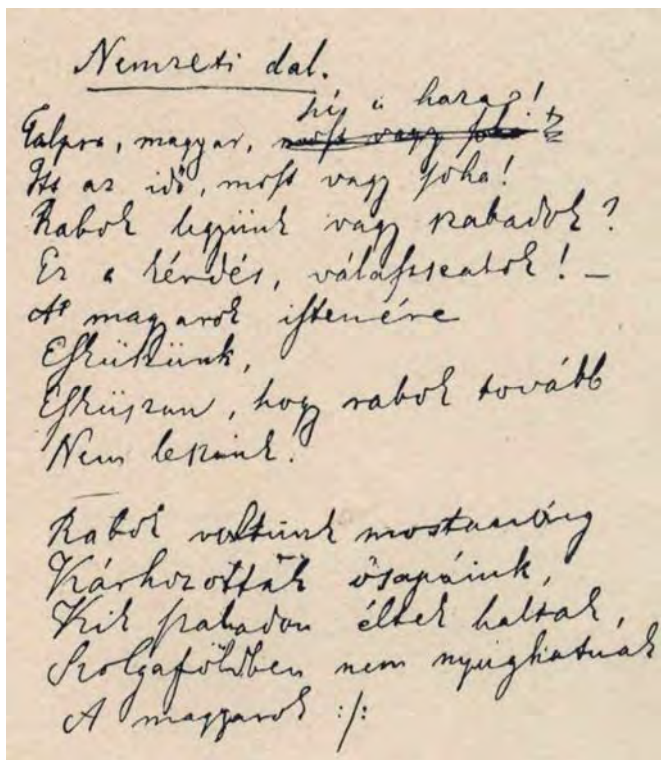 Nemzeti dal.
hí a haza!
Talpra, magyar, most vagy soha
Itt az idő, most vagy soha!
Rabok legyünk vagy szabadok?
Ez a kérdés, válasszatok! –
A magyarok istenére
Esküszünk,
Esküszünk, hogy rabok tovább
Nem leszünk.
Rabok voltunk mostanáig
Kárhozottak ősapáink,
Kik szabadon éltek haltak,
Szolgaföldben nem nyughatnak
A magyarok :/: